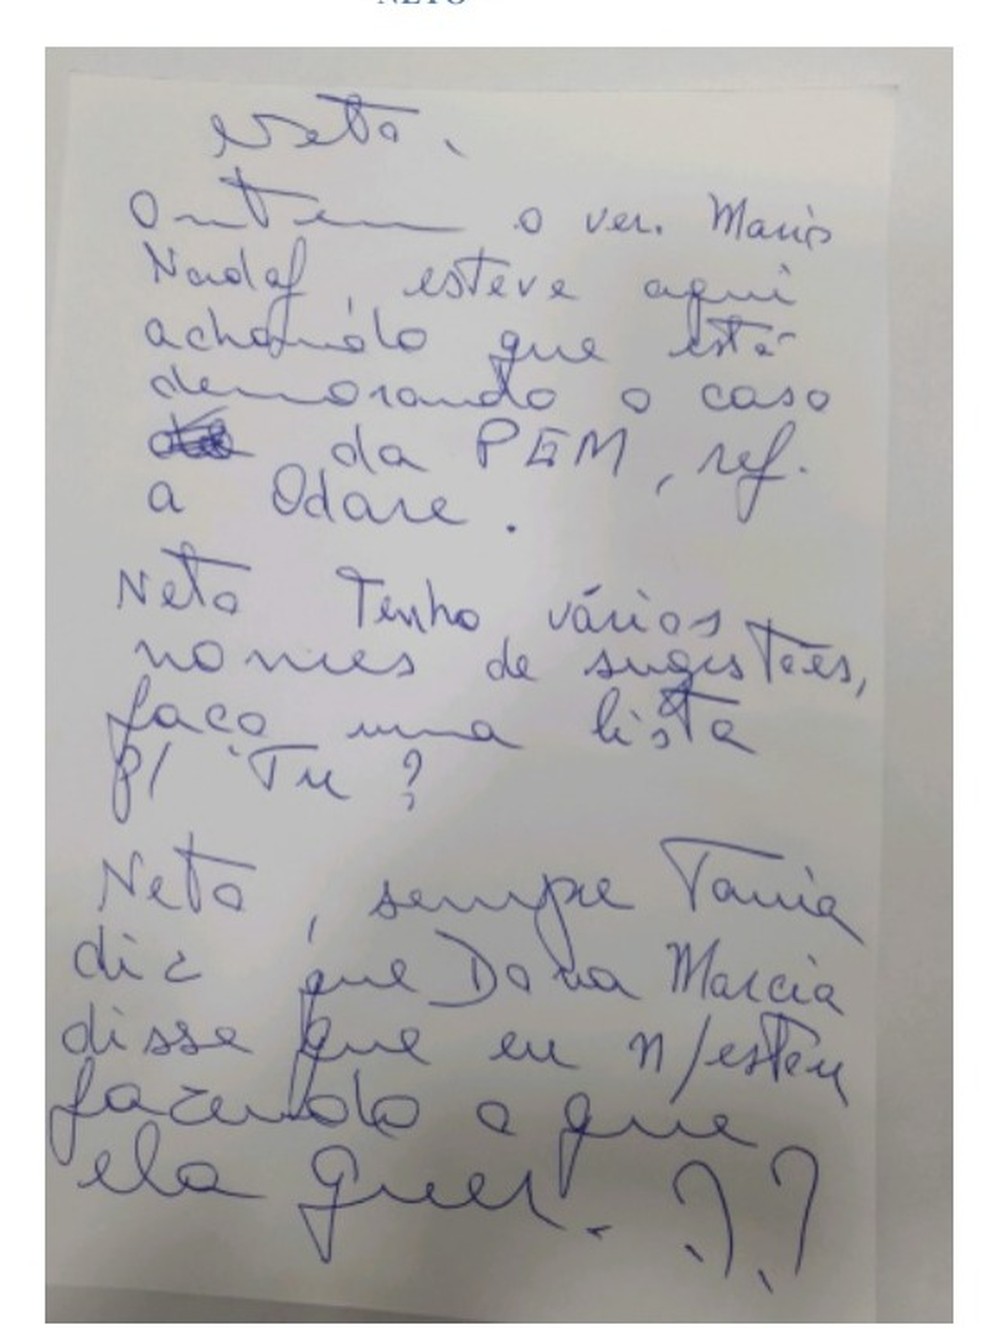 NETO
Neto,
Ontem o ver. Mario
Nadaf, esteve aqui
achando que está
demorando o caso
da PGM, ref.
a Odare.
Neto Tenho vários
nomes de sugestões,
faço uma lista
p/ Tu?
Neto, sempre Tania
diz que Dona Marcia
disse que eu n/estou
fazendo o que
ela quer. ??